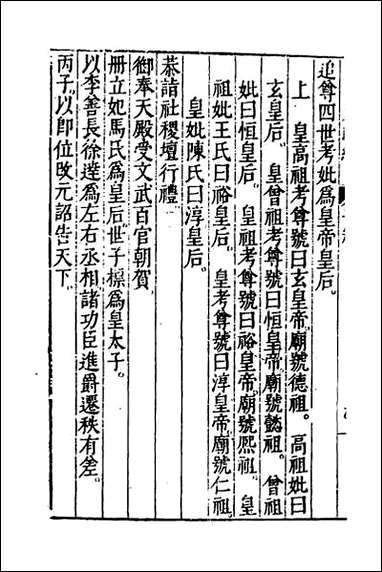 追尊四世考妣爲皇帝皇后。
上　皇高祖考尊號曰玄皇帝。廟號德祖。　高祖妣曰
玄皇后。　皇曾祖考尊號曰恒皇帝。廟號懿祖。　曾祖
妣曰恒皇后。　皇祖考尊號曰裕皇帝。廟號熙祖。　皇
祖妣王氏曰裕皇后。　皇考尊號曰淳皇帝。廟號仁祖
皇妣陳氏曰淳皇后。
恭詣社稷壇行禮
御奉天殿受文武百官朝賀。
冊立妃馬氏爲皇后世子標爲皇太子。
以李善長徐達爲左右丞相。諸功臣進爵遷秩有差。
丙子。以即位改元詔告天下。